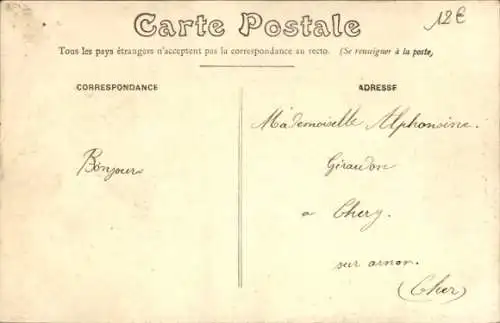 Carte Postale
12€
Tous les pays étrangers n'acceptent pas la correspondance au recto. (Se renseigner à la poste,
CORRESPONDANCE
ADRESSE
Mademoiselle Alphonsine
Giraudon
Bonjour
a Chery.
sur arnon.
(Cher)